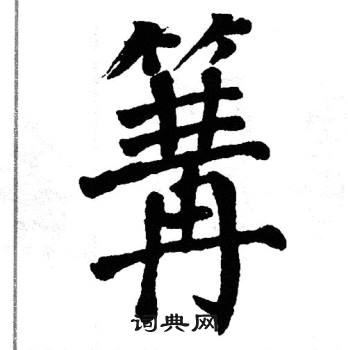 篝
词典网